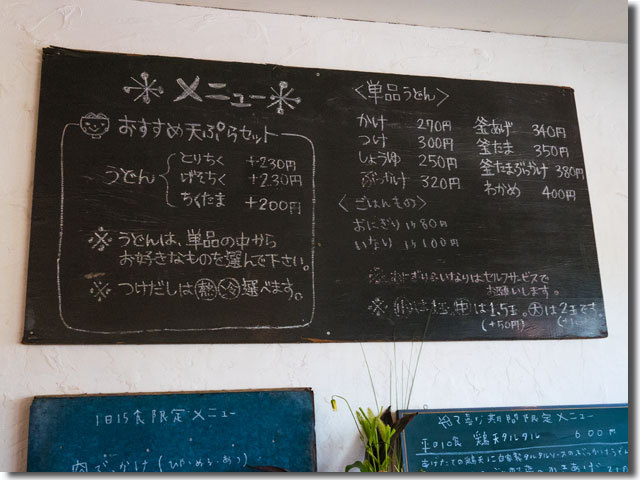 ※ メニュー ※
おすすめ天ぷらセット
うどん
とりちく +230円
げそちく +230円
ちくたま +200円
※ うどんは、単品の中から
お好きなものを選んで下さい。
※ つけだしは熱冷選べます。
〈単品うどん〉
かけ 270円
つけ 300円
しょうゆ 250円
ぶっかけ 320円
釜あげ 340円
釜たま 350円
釜たまぶっかけ 380円
わかめ 400円
〈ごはんもの〉
おにぎり 1ケ 80円
いなり 1ケ 100円
おにぎり・いなりはセルフサービスで
お願いします。
※ 中は1.5玉。大は2玉です。
(+50円)
1日15食限定メニュー
肉ぶっかけ
期間限定メニュー
平日10食 鶏天タルタル 600円